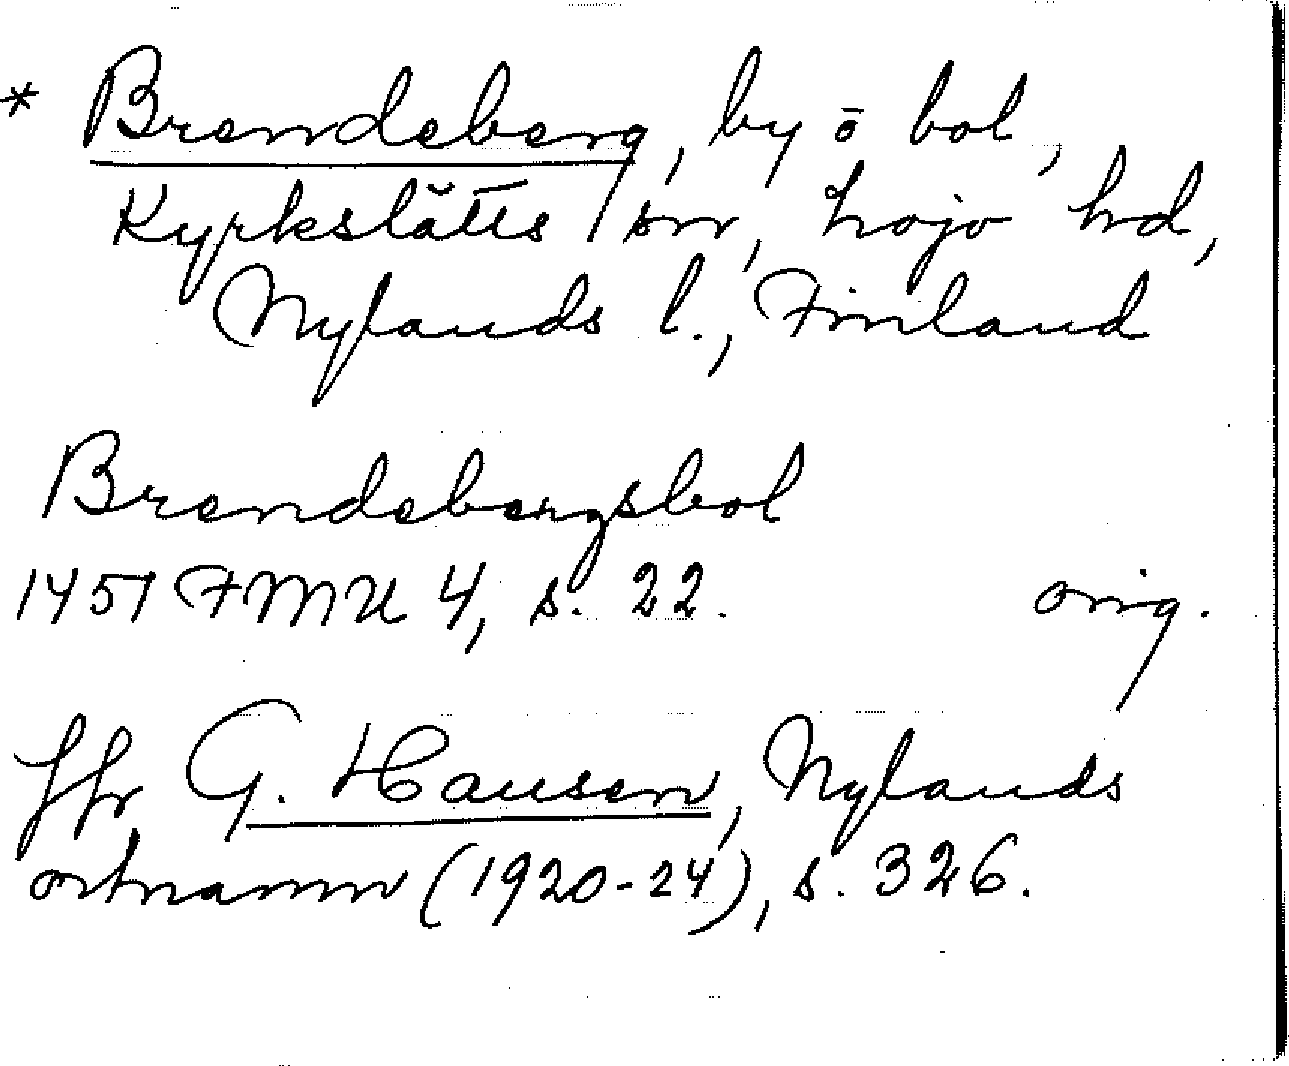 * Brendeberg, by ō bol,
Kyrkslätts sn, Lojo hd,
Nylands l., Finland
Brendebergsbol
1451 FMU 4, s. 22. orig.
Jfr G. Hausen, Nylands
ortnamn (1920-24), s. 326.